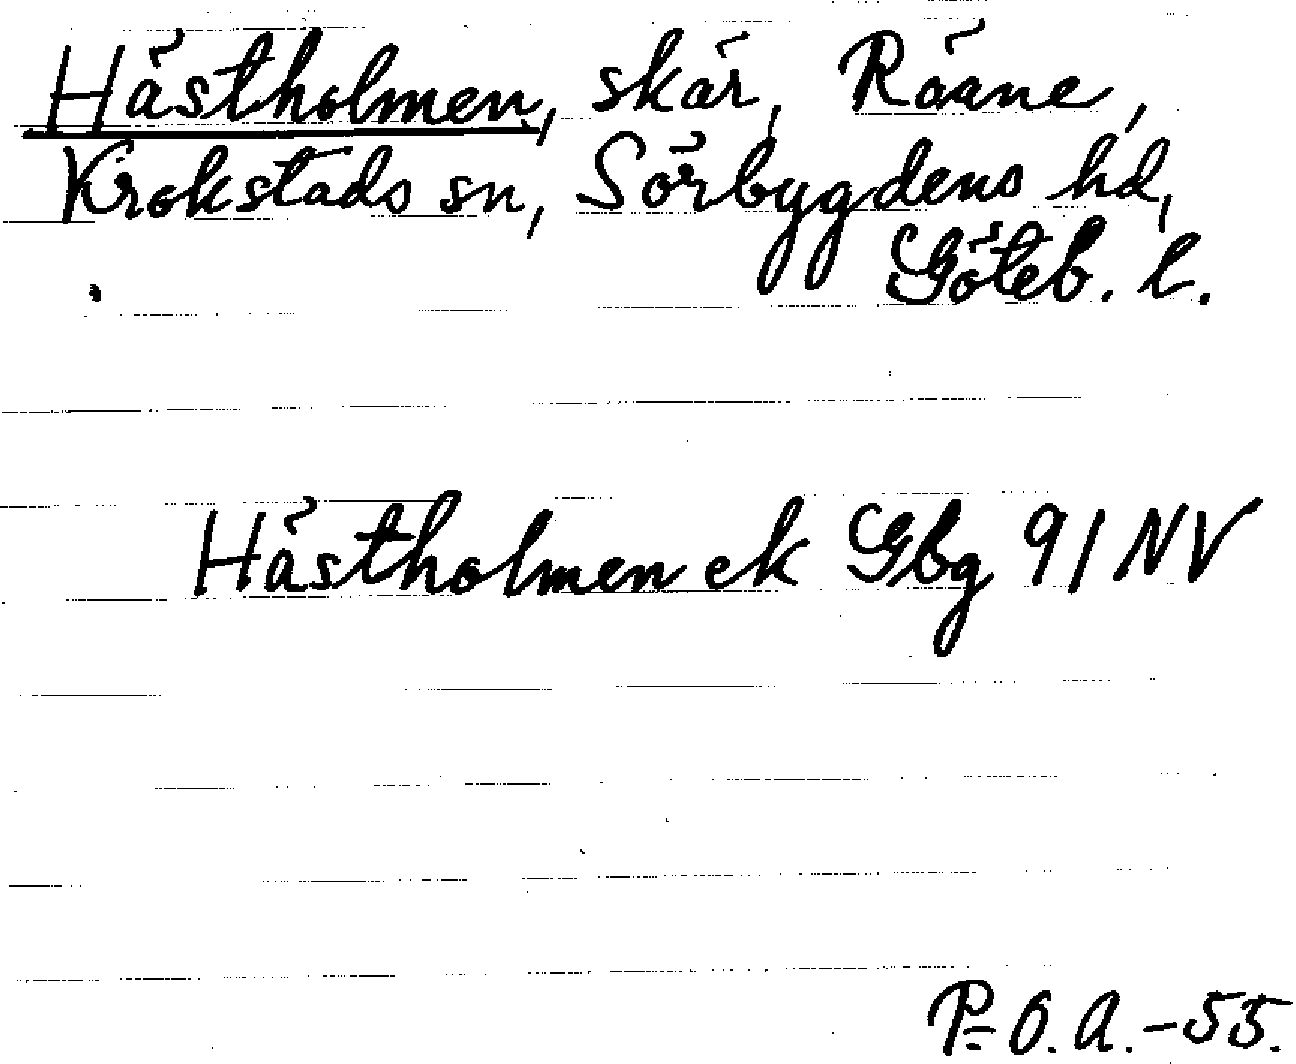 Hästholmen, skär, Rääne,
Krokstads sn, Sörbygdens hd,
Göteb. l.
Hästholmen ek Gbg 91 NV
P=O.A.-55.